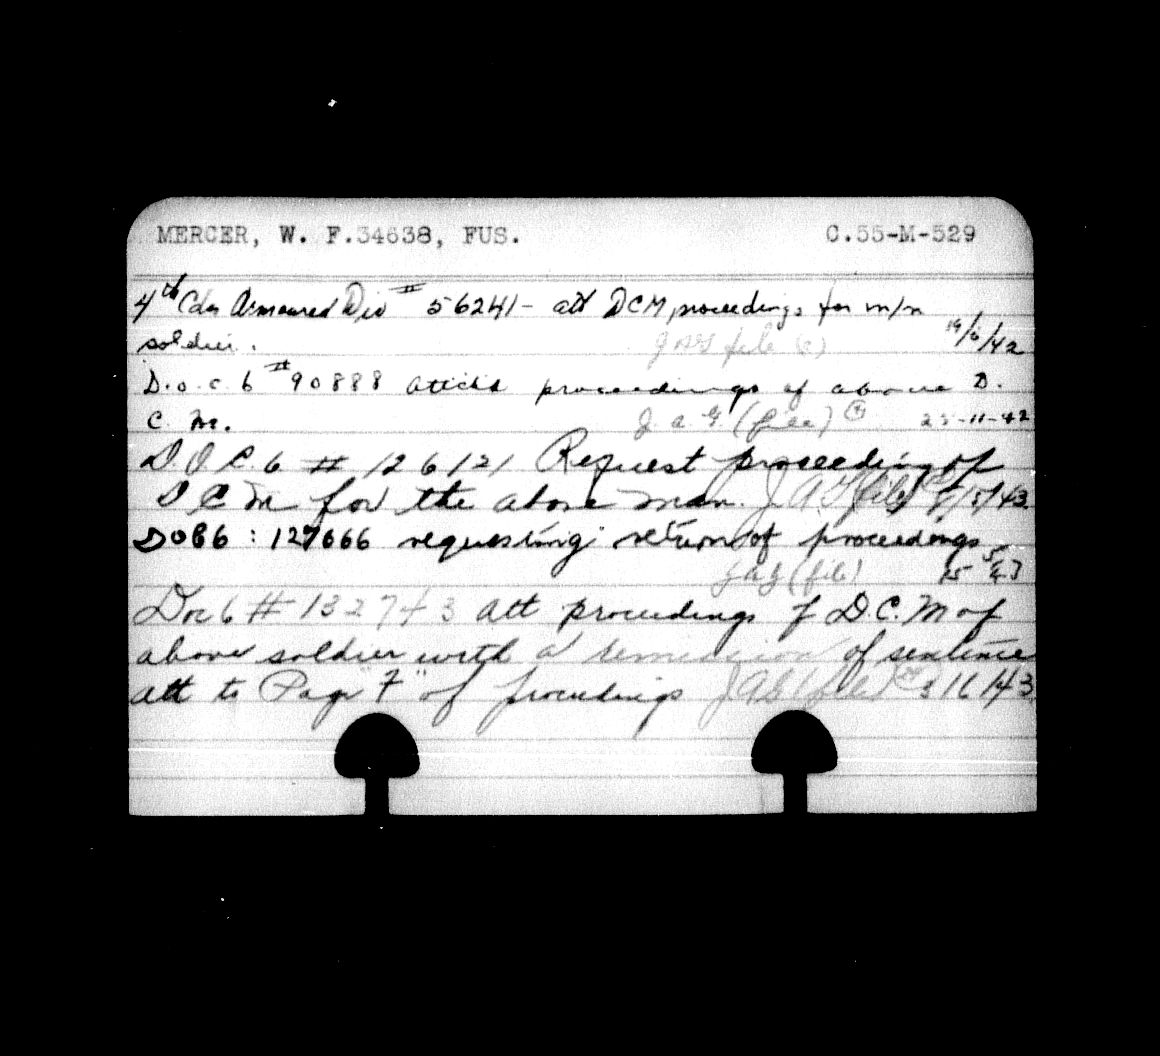 MERCER, W. F.34638, FUS. C.55-M-529
4th Cdn Armoured Div # 56241 - att DCM, proceedings for m/n
soldier. JAG file (c) 19/6/42
D.o.c. 6 # 90888 attchd proceedings of above D.
C. M. J. a. G. (file) 25-11-42
D.O.C. 6 # 126121 Request proceedings of
D C M for the above man. J A G (file) 7/5/43
DOC6 : 127666 requesting return of proceedings
JAG (file) 15 5/43
Doc 6 # 132743 att proceedings of D.C.M of
above soldier with a remission of sentence
att to Page "7" of proceedings JAG (file) 3/6/43